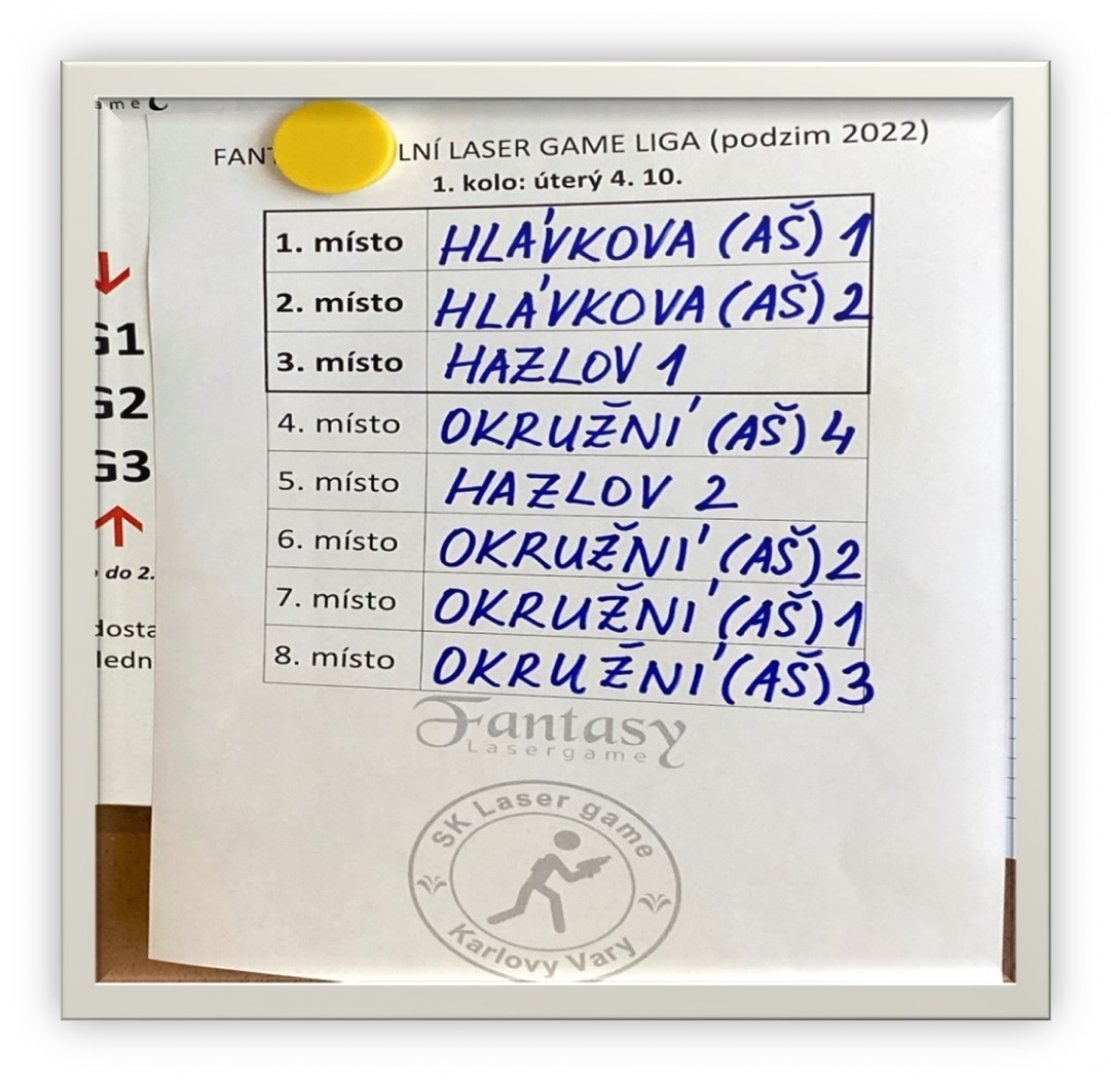 ame
FAN LNÍ LASER GAME LIGA (podzim 2022)
1. kolo: úterý 4. 10.
1. místo HLÁVKOVA (AŠ) 1
2. místo HLÁVKOVA (AŠ) 2
3. místo HAZLOV 1
4. místo OKRUŽNÍ (AŠ) 4
5. místo HAZLOV 2
6. místo OKRUŽNÍ (AŠ) 2
7. místo OKRUŽNÍ (AŠ) 1
8. místo OKRUŽNÍ (AŠ) 3
G1
G2
G3
do 2.
dosta
ledn
Fantasy
Lasergame
SK Laser game
Karlovy Vary